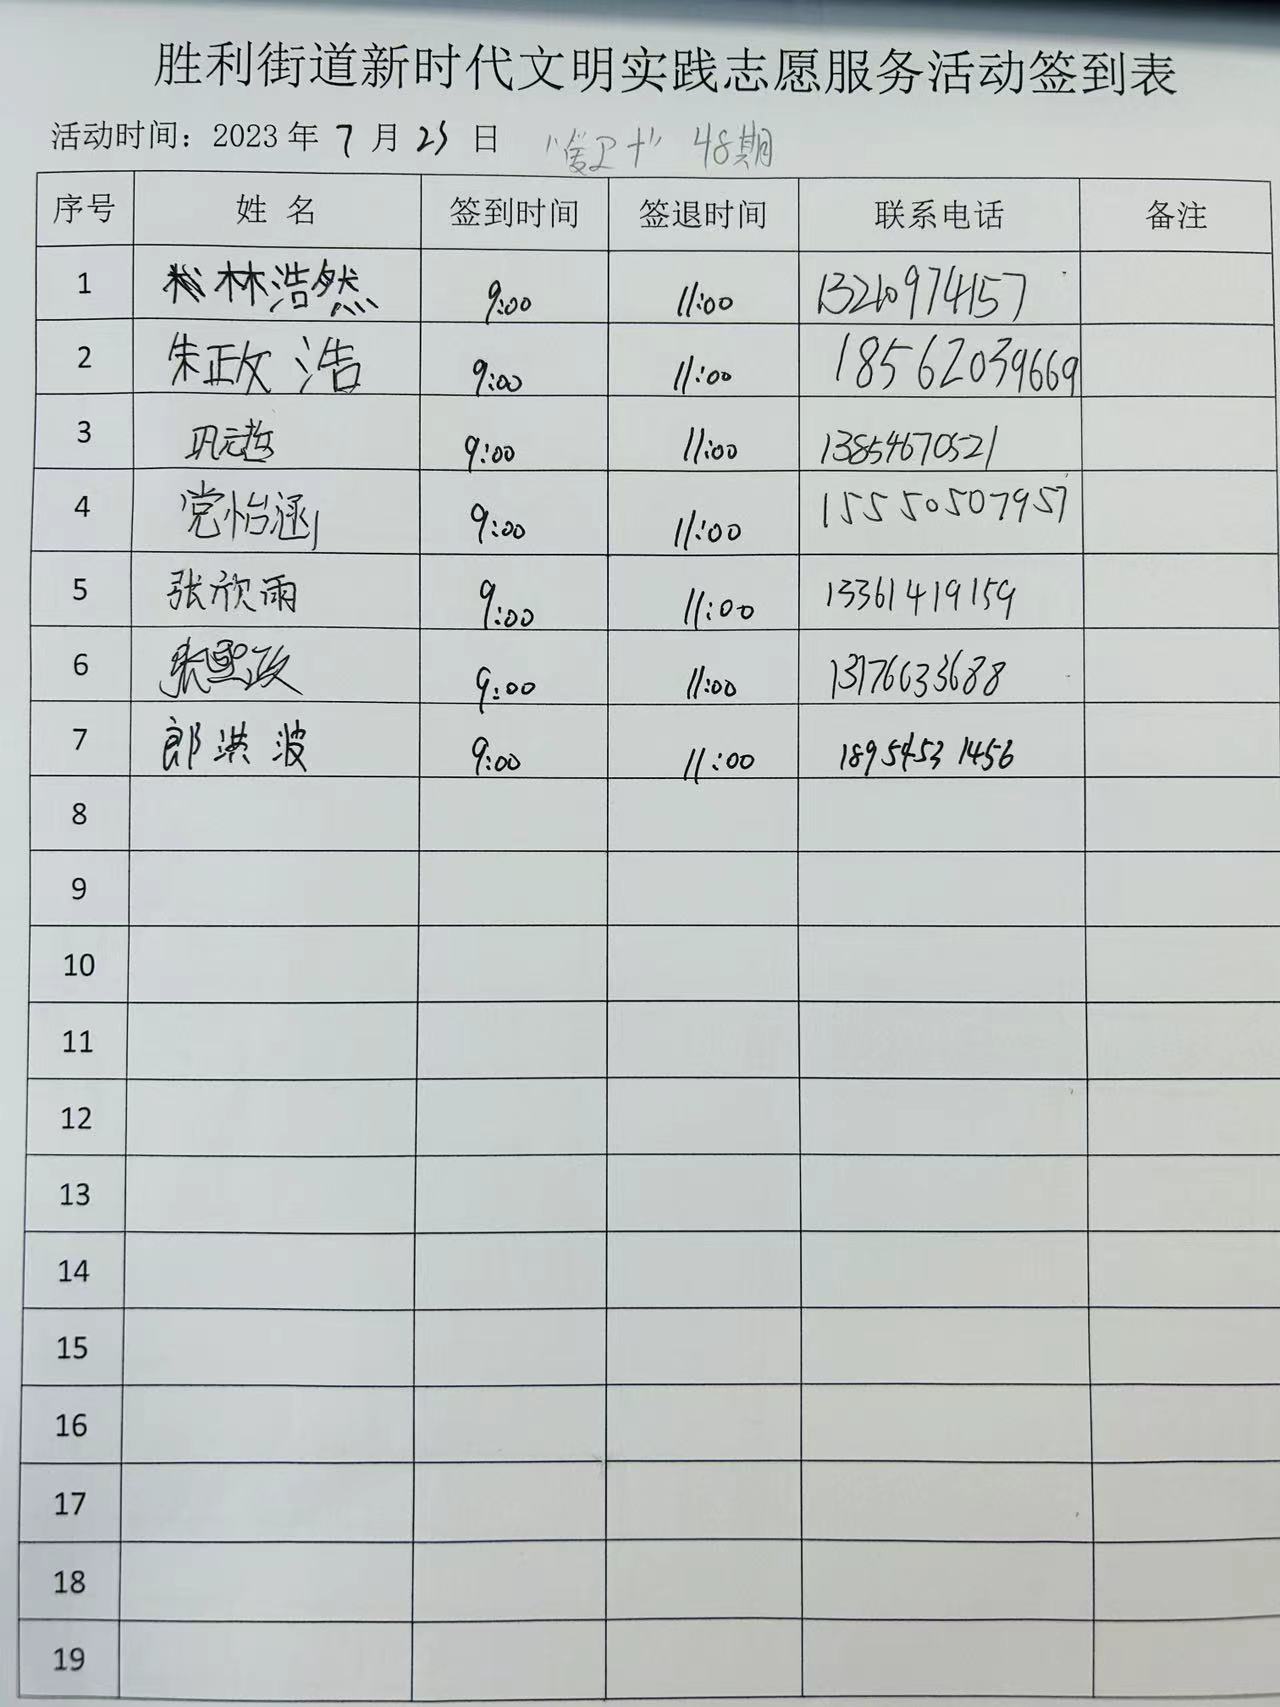 胜利街道新时代文明实践志愿服务活动签到表
活动时间：2023 年 7 月 23 日 “爱卫+” 48期
序号 姓 名 签到时间 签退时间 联系电话 备注
1 林浩然 9:00 11:00 13210974157
2 朱政浩 9:00 11:00 18562039669
3 巩元哲 9:00 11:00 13854670521
4 党怡涵 9:00 11:00 15550507957
5 张欣雨 9:00 11:00 13361419159
6 张熙政 9:00 11:00 13176633688
7 郎洪波 9:00 11:00 18954531456
8
9
10
11
12
13
14
15
16
17
18
19